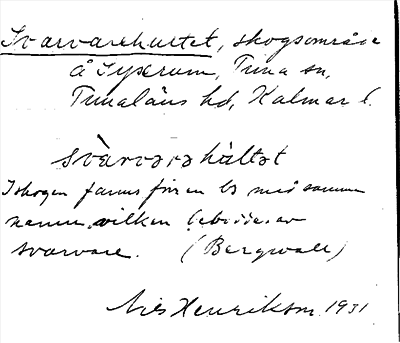 Svarvarehultet, skogsområde
å Syserum, Tuna sn,
Tunaläns hd, Kalmar l.
svàrvərəhùltət
I skogen fanns förr en ls med samma
namn, vilken beboddes av
svarvare. (Bergwall)
Nils Henrikson 1931